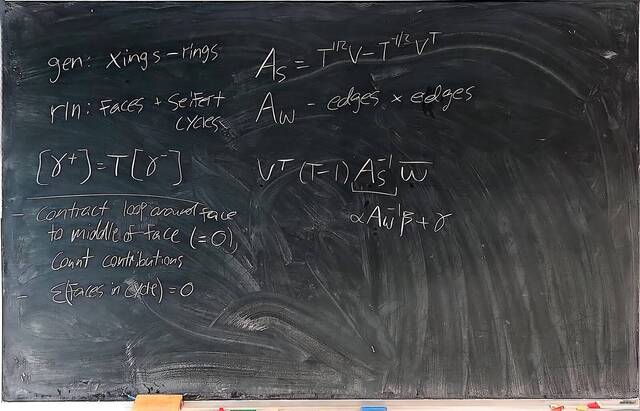 gen: Xings - rings
rln: Faces + Seifert
cycles
[γ⁺] = T[γ⁻]
- contract loop around face
to middle of face (=0),
Count contributions
- Σ(Faces in cycle) = 0
A_S = T^{1/2}V - T^{-1/2}V^T
A_w - edges × edges
V^T (T-1) A_S^{-1} w̅
αA_w^{-1}β + γ